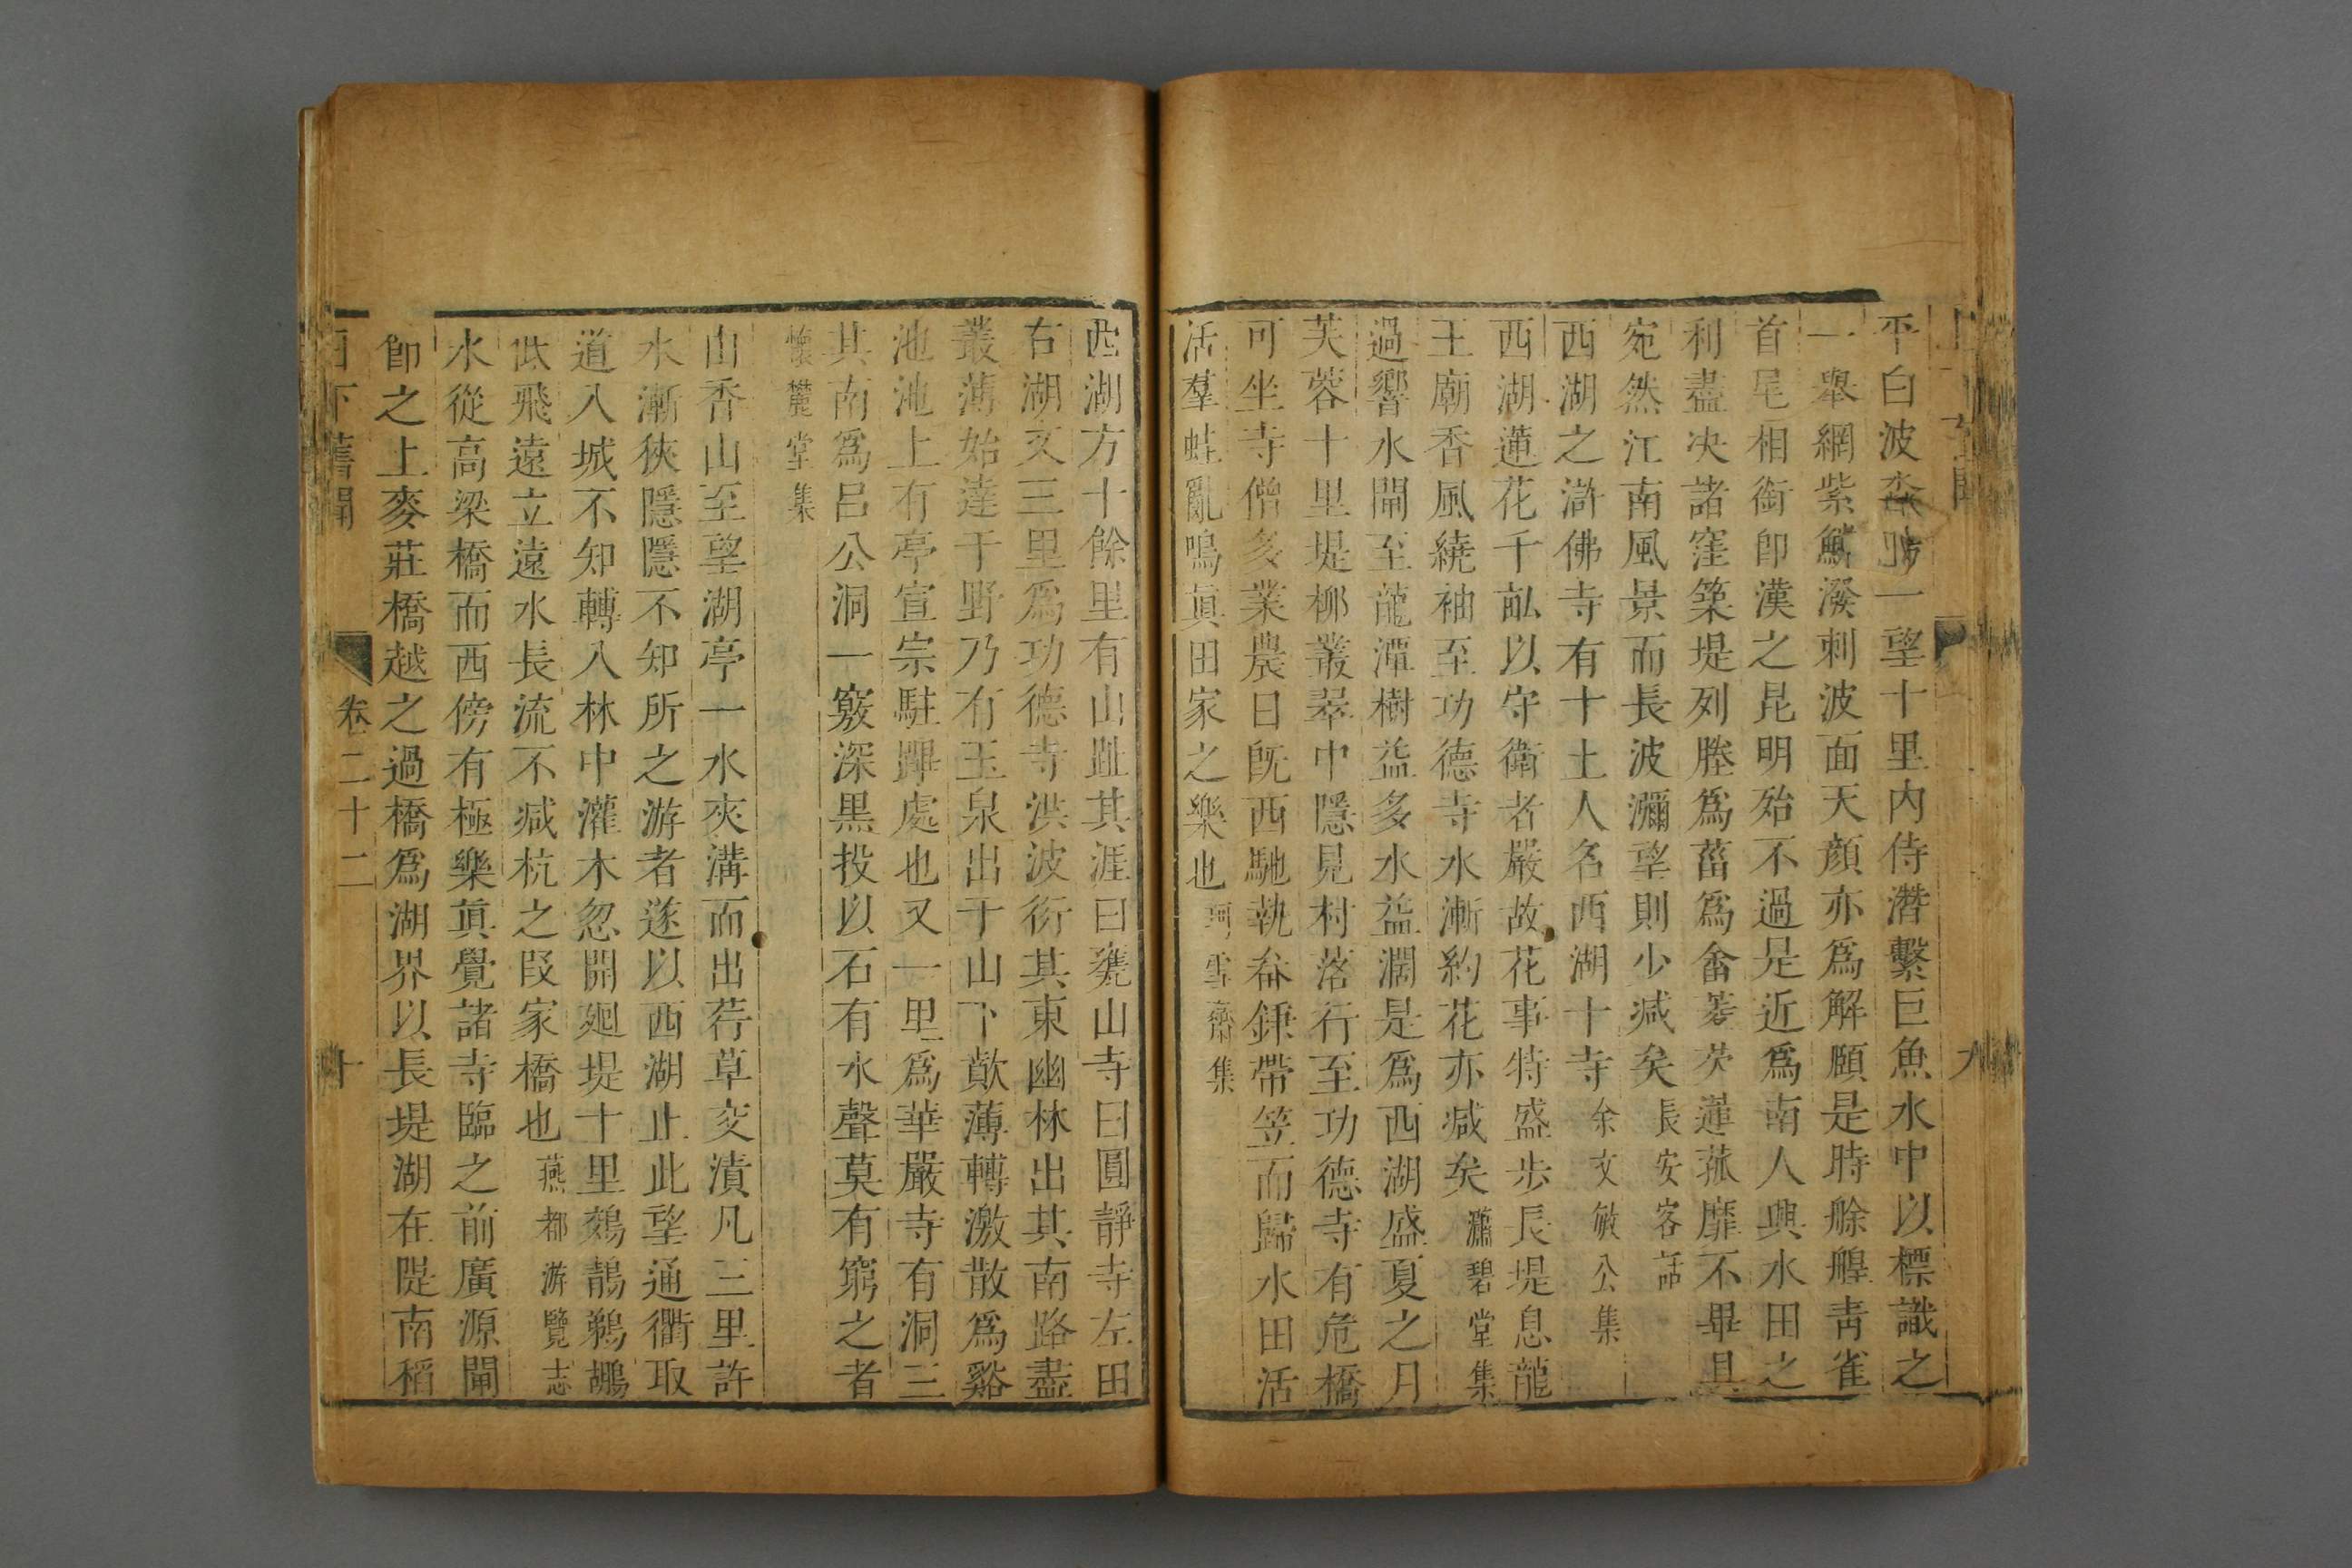 平白波淼𣺌一望十里內侍潛繫巨魚水中以標識之
一舉網紫鱗潑刺波面天顏亦爲解頤是時艅艎靑雀
首尾相銜卽漢之昆明殆不過是近爲南人興水田之
利盡决諸窪築堤列塍爲葘爲畬菱芡蓮菰靡不畢具
宛然江南風景而長波瀰望則少减矣長安客話
西湖之滸佛寺有十土人名西湖十寺余文敏公集
西湖蓮花千畝以守衛者嚴故花事特盛步長堤息龍
王廟香風繞袖至功德寺水漸約花亦减矣瀟碧堂集
過響水閘至龍潭樹益多水益濶是爲西湖盛夏之月
芙蓉十里堤柳叢翠中隱見村落行至功德寺有危橋
可坐寺僧多業農日旣西馳執畚錸帶笠而歸水田活
活羣蛙亂鳴眞田家之樂也珂雪齋集
西湖方十餘里有山趾其涯曰甕山寺曰圓靜寺左田
右湖又三里爲功德寺洪波衍其東幽林出其南路盡
叢薄始達于野乃有玉泉出于山下歕薄轉激散爲谿
池池上有亭宣宗駐蹕處也又一里爲華嚴寺有洞三
其南爲呂公洞一竅深黑投以石有水聲莫有窮之者
懷麓堂集
山香山至望湖亭一水夾溝而出荇草交漬凡三里許
水漸狹隱隱不知所之游者遂以西湖止此望通衢取
道入城不知轉入林中灌木忽開𢌞堤十里鵁鶄鵜鶘
低飛遠立遠水長流不减杭之段家橋也燕都游覽志
水從高梁橋而西傍有極樂眞覺諸寺臨之前廣源閘
卽之上麥莊橋越之過橋爲湖界以長堤湖在隄南稻
日下舊聞　卷二十二　十